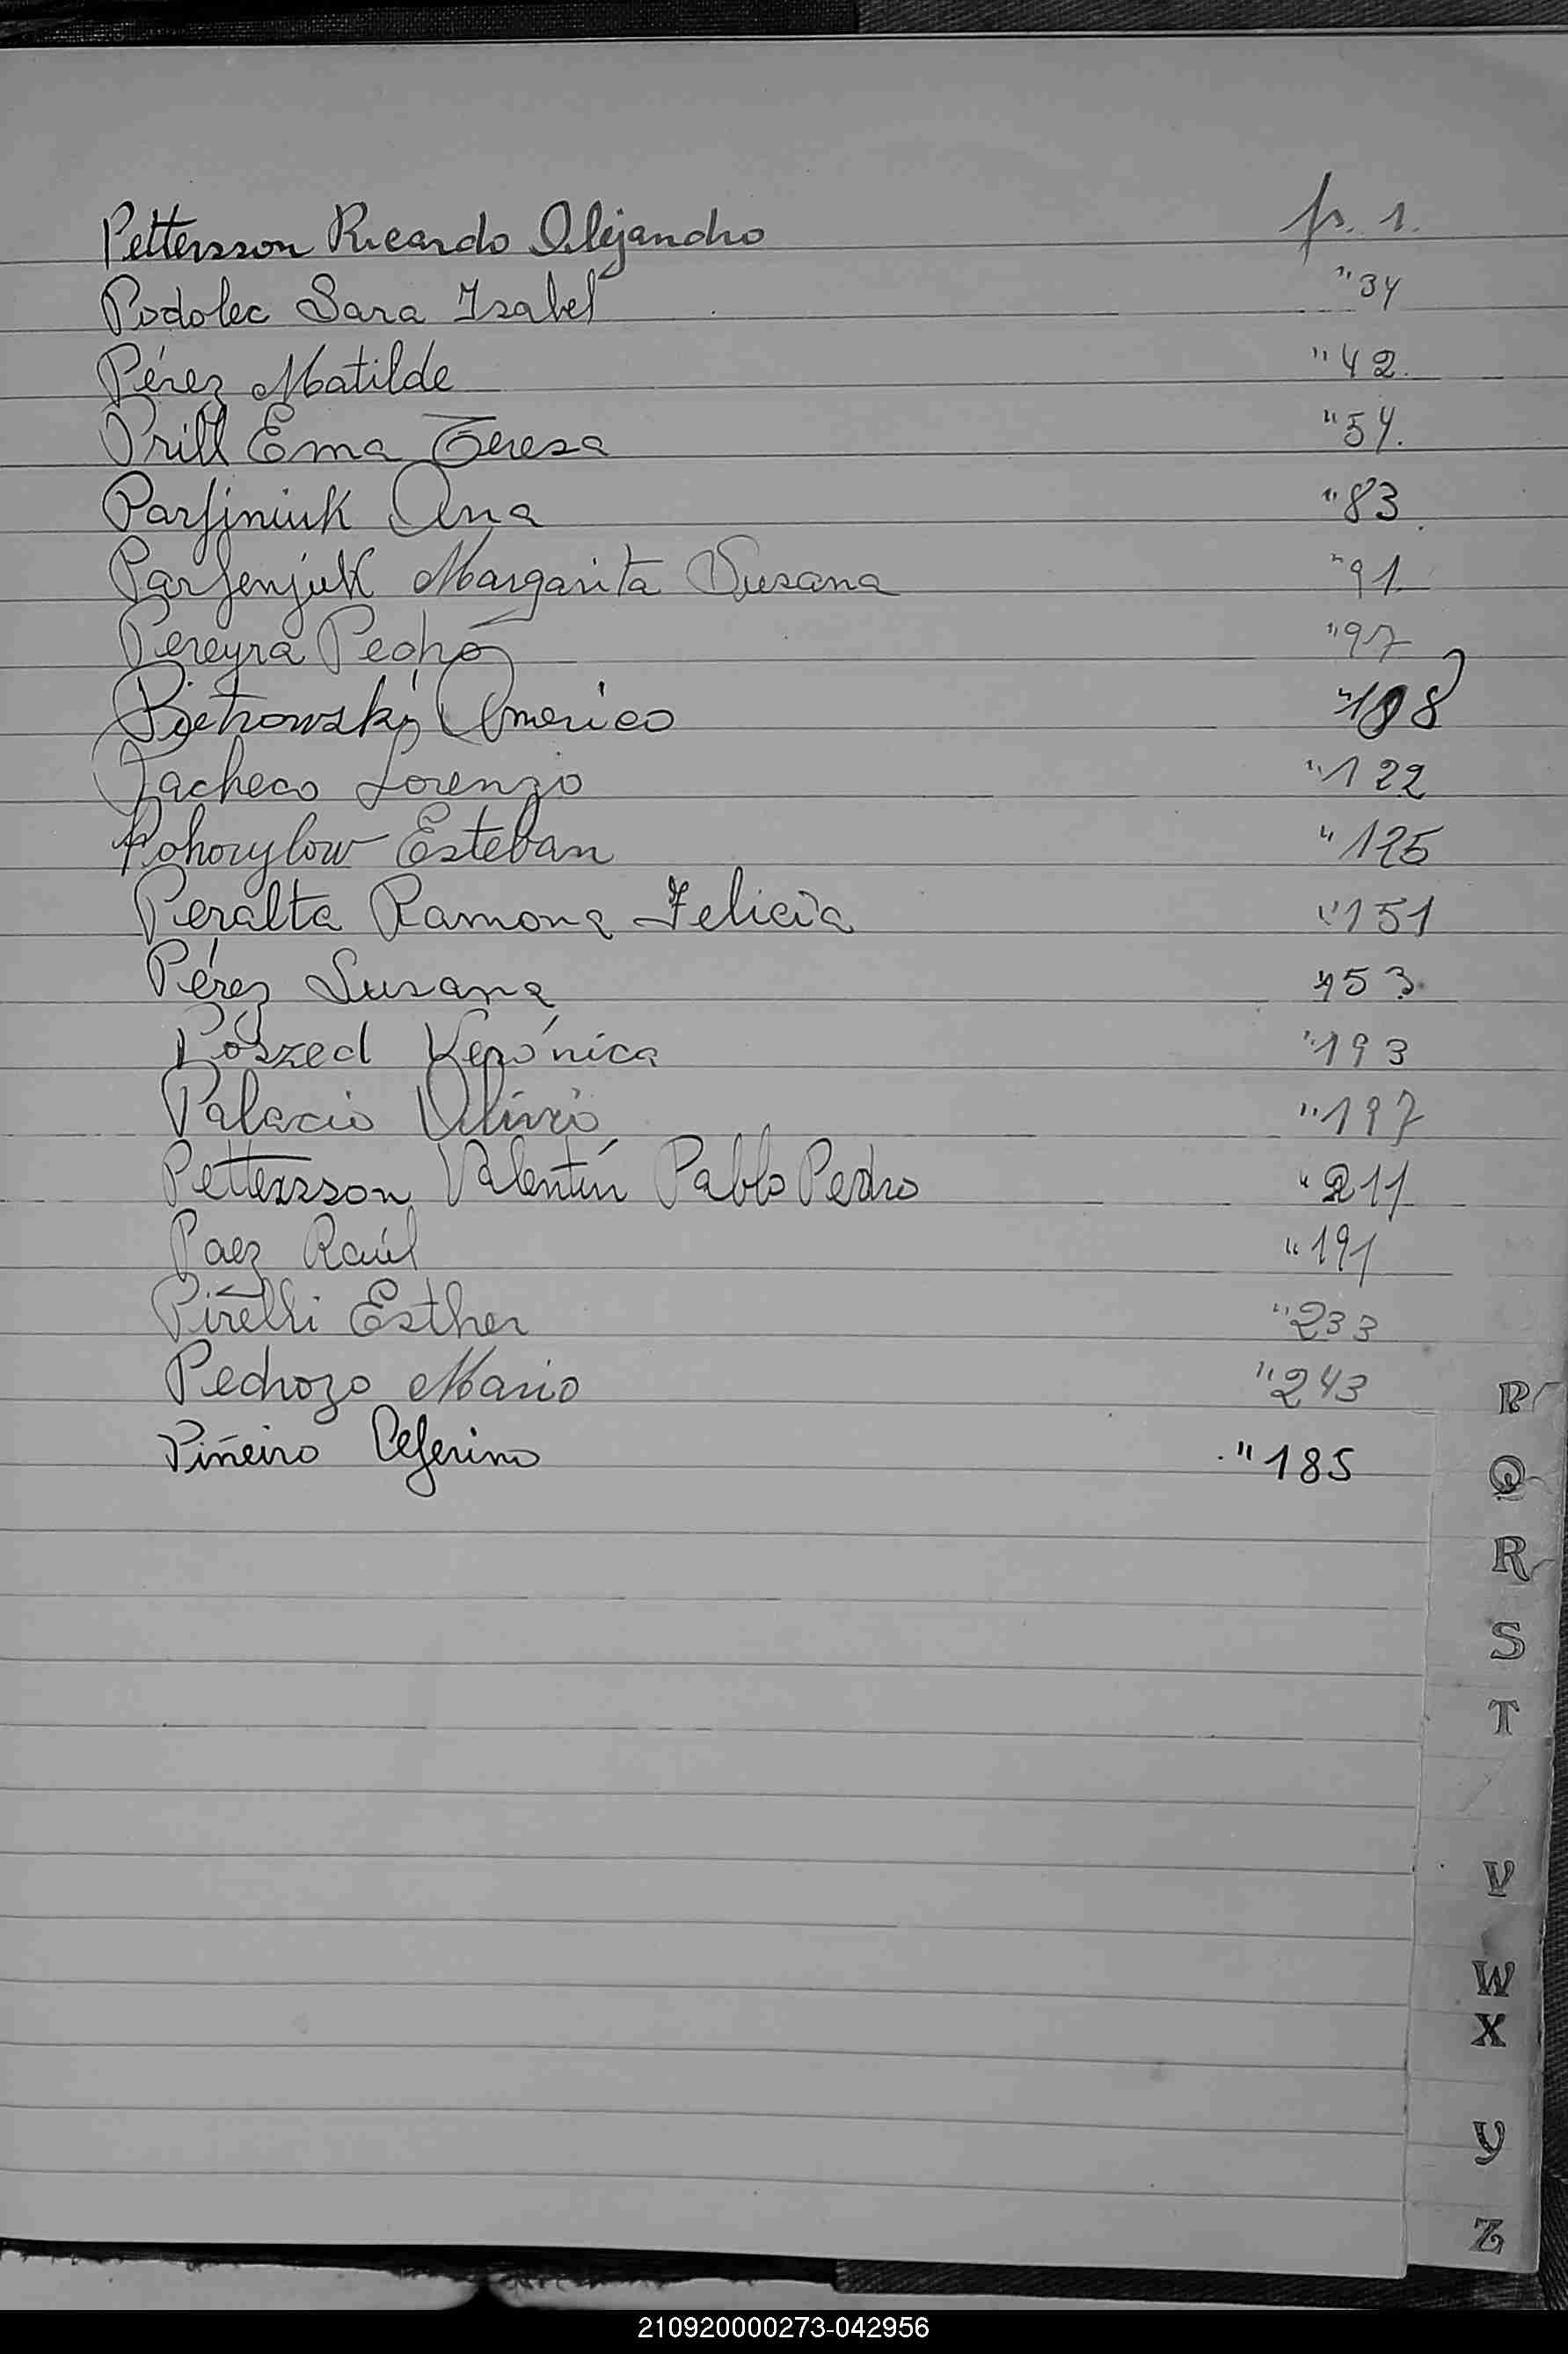 Pettersson Ricardo Alejandro p. 1.
Podolec Sara Isabel " 34
Pérez Matilde " 42.
Prill Ema Teresa " 54.
Parfiniuk Ana " 83
Parfenjuk Margarita Susana " 91
Pereyra Pedro " 97
Pietrowski Americo " 108
Pacheco Lorenzo " 122
Pohorylow Esteban " 125
Peralta Ramona Felicia " 151
Pérez Susana " 153
Pószed Verónica " 193
Palacio " 197
Pettersson Valentín Pablo Pedro " 211
Paez Raúl " 191
Pirelli Esther " 233
Pedrozo Mario " 243
Piñeiro Ceferino " 185
P
Q
R
S
T
V
W
X
Y
Z
210920000273-042956